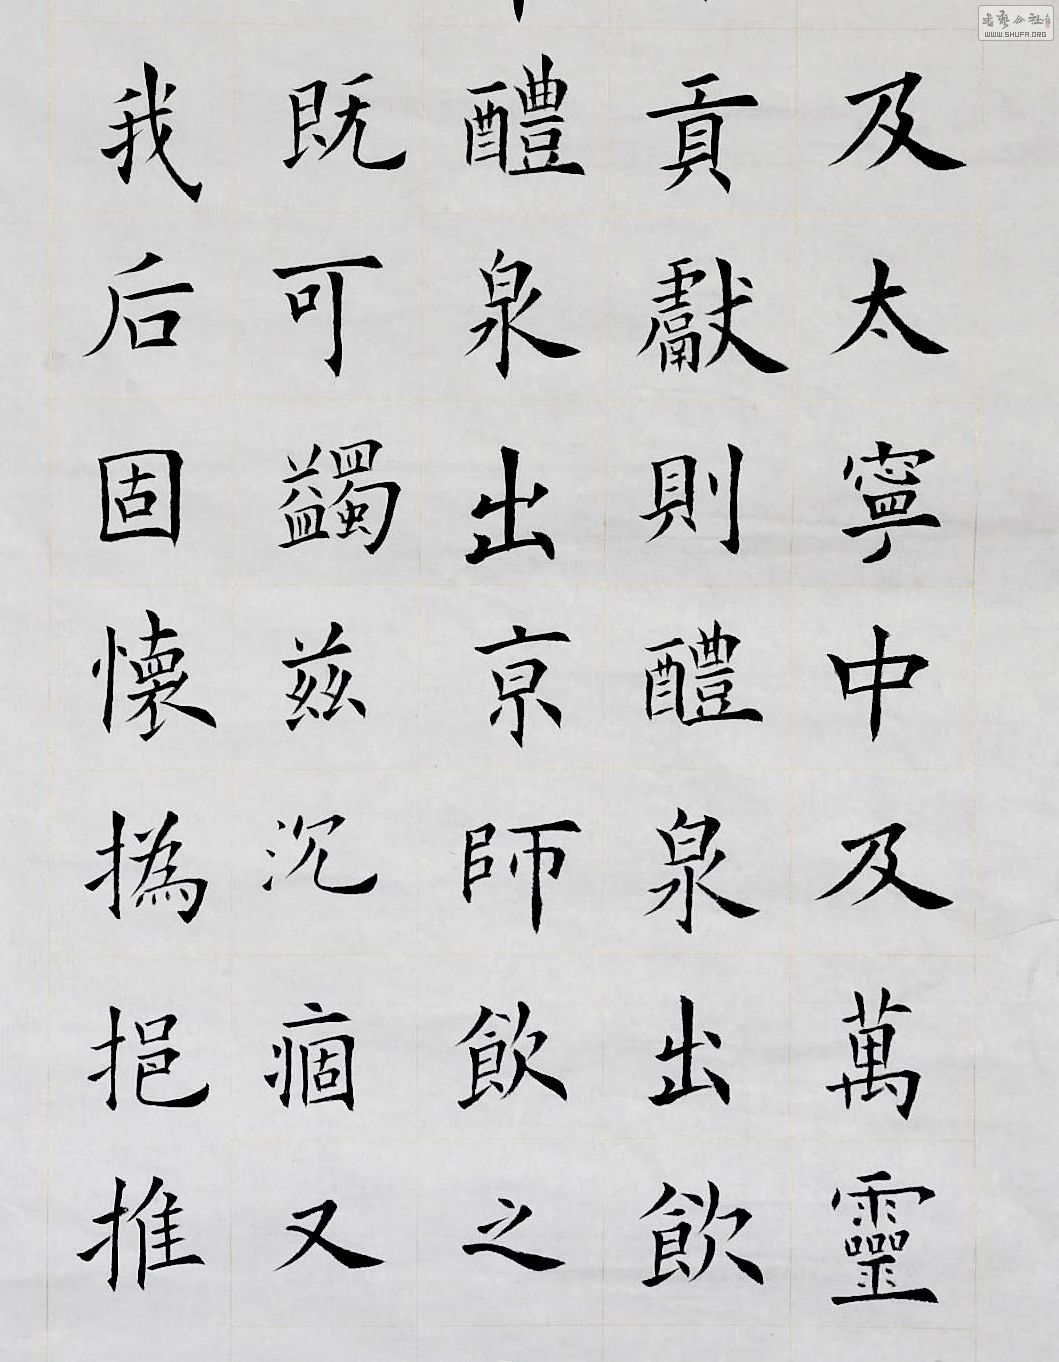 及太寧中及萬靈
貢獻則醴泉出飲
醴泉出京師飲之
既可蠲茲沉痼又
我后固懷撝挹推
WWW.SHUFA.ORG